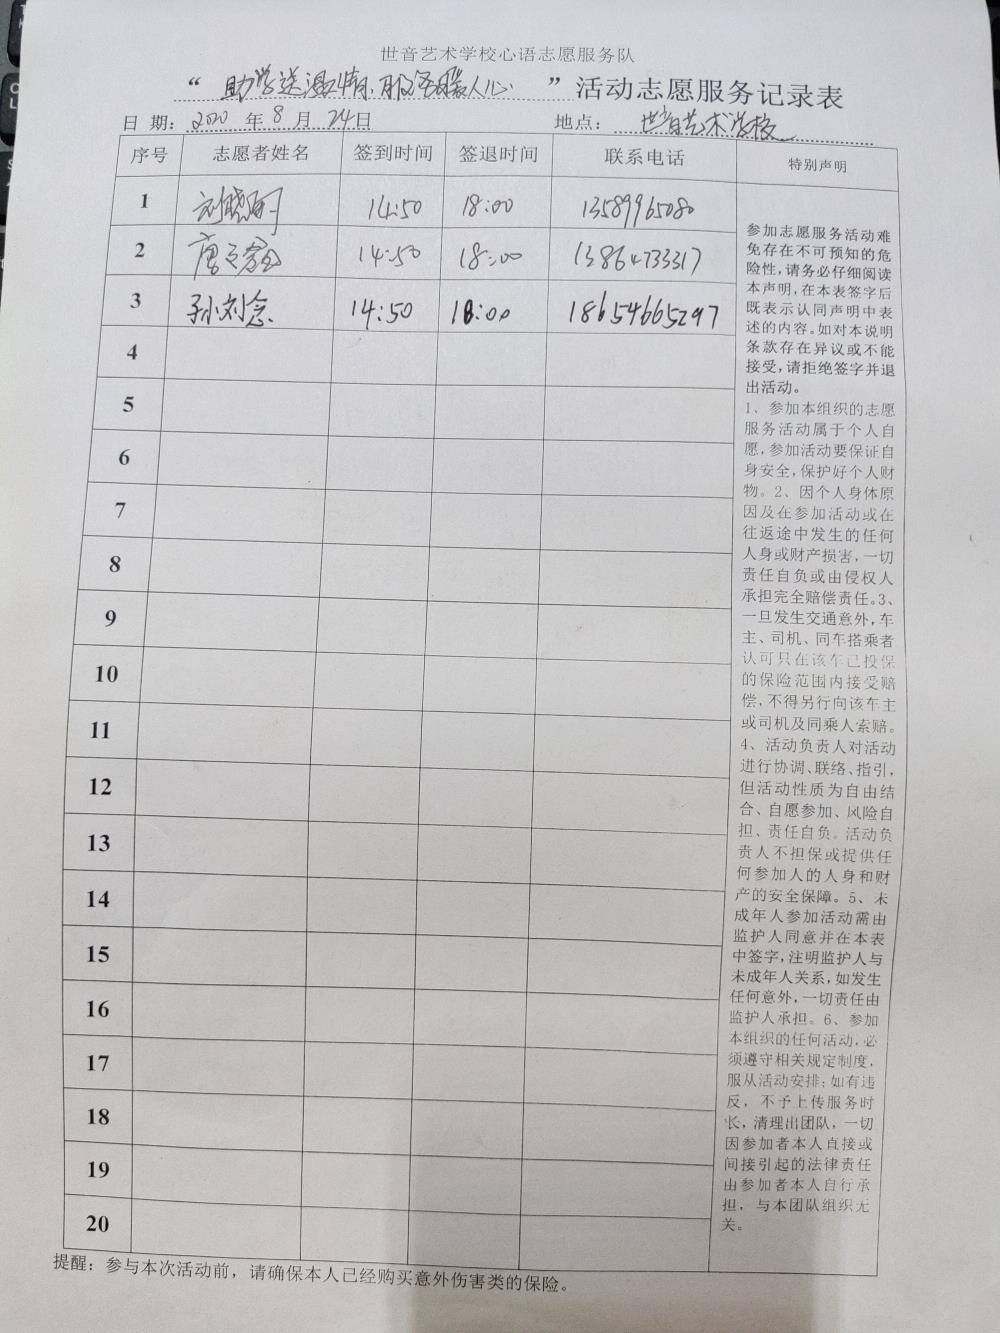 世音艺术学校心语志愿服务队
“助学送温情.服务暖人心”活动志愿服务记录表
日 期：2020 年 8 月 24日 地点：世音艺术学校
序号 志愿者姓名 签到时间 签退时间 联系电话 特别声明
1 刘晓丽 14:50 18:00 13589965080
2 唐 14:50 18:00 13864733317
3 孙刘念 14:50 18:00 18654665297
4
5
6
7
8
9
10
11
12
13
14
15
16
17
18
19
20
参加志愿服务活动难
免存在不可预知的危
险性，请务必仔细阅读
本声明，在本表签字后
既表示认同声明中表
述的内容。如对本说明
条款存在异议或不能
接受，请拒绝签字并退
出活动。
1、参加本组织的志愿
服务活动属于个人自
愿，参加活动要保证自
身安全，保护好个人财
物。2、因个人身体原
因及在参加活动或在
往返途中发生的任何
人身或财产损害，一切
责任自负或由侵权人
承担完全赔偿责任。3、
一旦发生交通意外，车
主、司机、同车搭乘者
认可只在该车已投保
的保险范围内接受赔
偿，不得另行向该车主
或司机及同乘人索赔。
4、活动负责人对活动
进行协调、联络、指引，
但活动性质为自由结
合、自愿参加、风险自
担、责任自负。活动负
责人不担保或提供任
何参加人的人身和财
产的安全保障。5、未
成年人参加活动需由
监护人同意并在本表
中签字，注明监护人与
未成年人关系，如发生
任何意外，一切责任由
监护人承担。6、参加
本组织的任何活动，必
须遵守相关规定制度，
服从活动安排；如有违
反，不予上传服务时
长，清理出团队，一切
因参加者本人直接或
间接引起的法律责任
由参加者本人自行承
担，与本团队组织无
关。
提醒：参与本次活动前，请确保本人已经购买意外伤害类的保险。